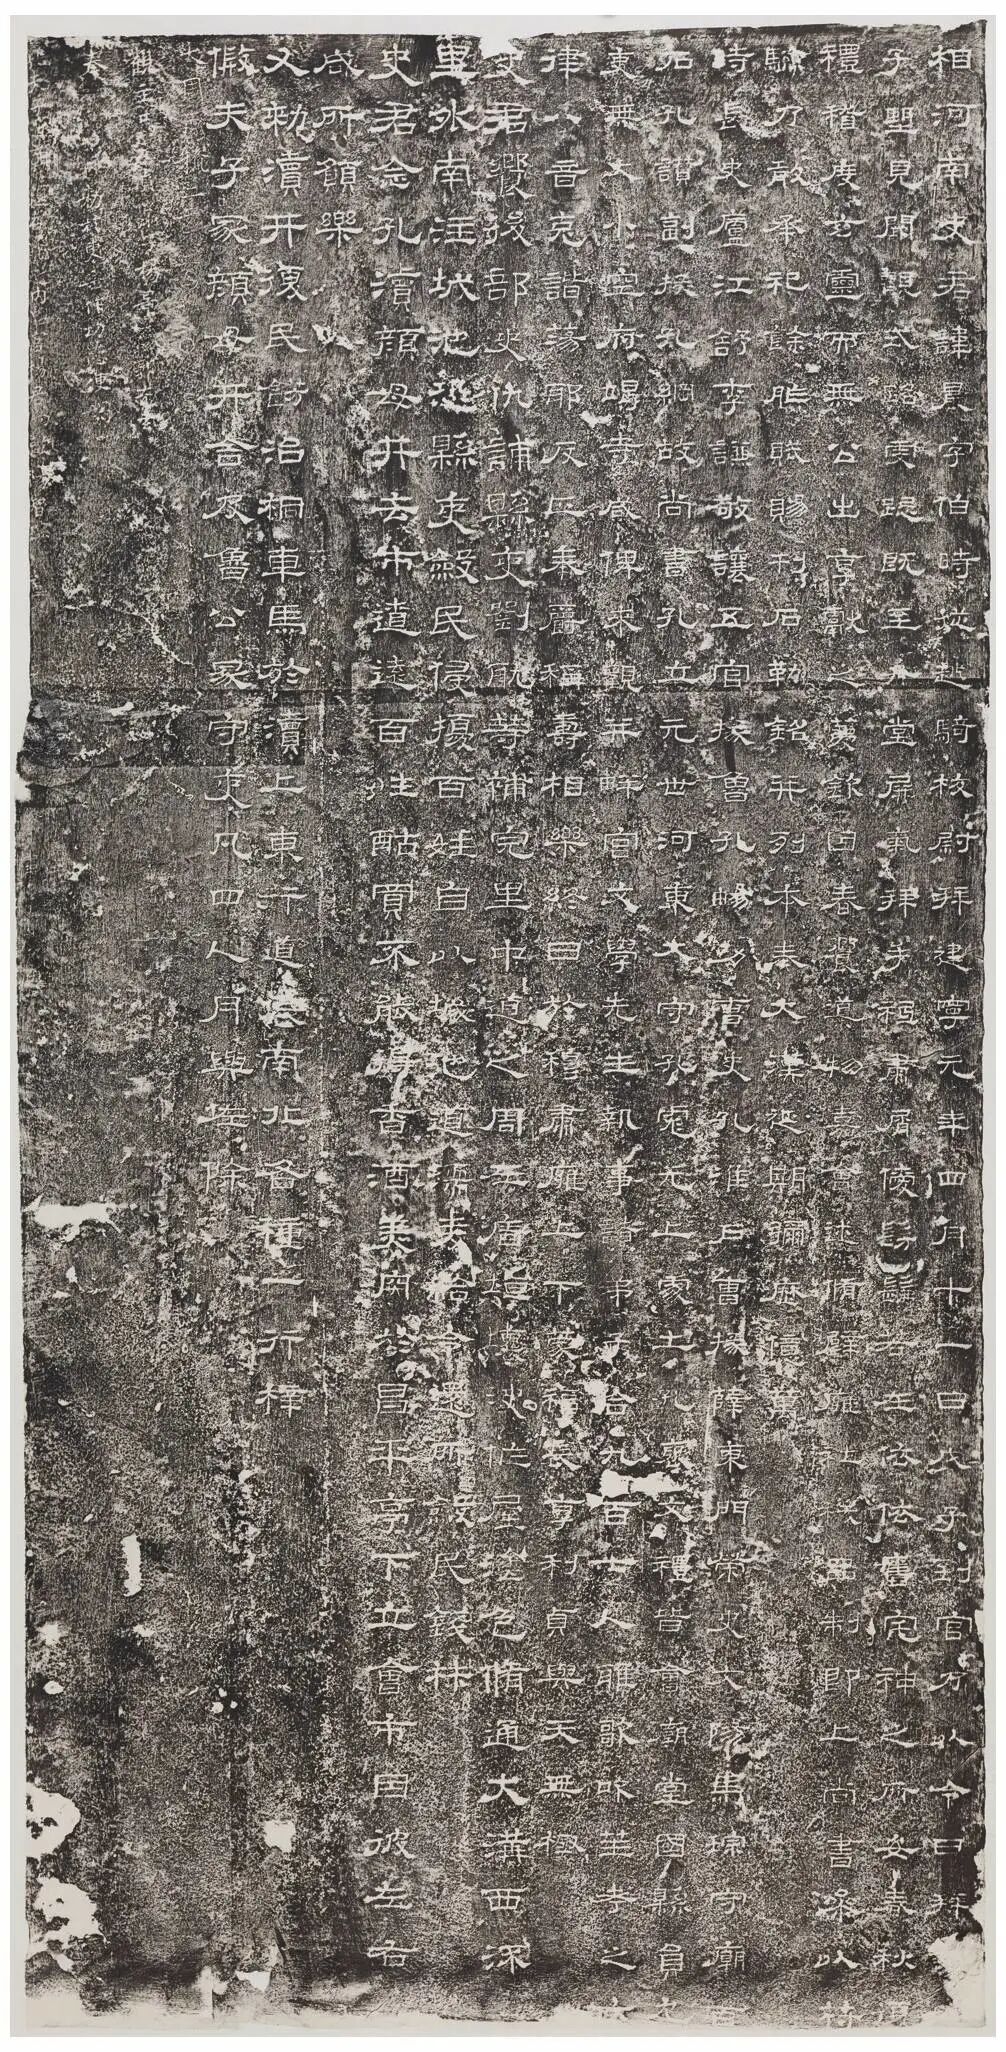 相河南史君諱晨字伯時從越騎校尉拜建寧元年四月十一日戊子到官乃以令日拜
子望見闕觀式路虔跽既至升堂屏氣拜手祗肅屑僾髣髴若在依依舊宅神之所安春秋復
禮稽度玄靈而無公出享獻之薦欽因春饗導物嘉會述脩辟雍社稷品制即上尚書參以符
驗乃敢承祀餘胙賦賜刊石勒銘并列本奏大漢延期彌歷億萬
時長史廬江舒李謙敬讓五官掾魯孔暢功曹史孔淮戶曹掾薛東門榮史文陽馬琮守廟百
石孔讚副掾孔綱故尚書孔立元世河東大守孔彪元上處土孔褒文禮皆會廟堂國縣員冗
吏無大小空府竭寺咸俾來觀并畔宮文學先生執事諸弟子合九百七人雅歌吹笙考之六
律八音克諧蕩邪反正奉爵稱壽相樂終日於穆肅雍上下蒙福長享利貞與天無極
史君饗後部史仇誧縣吏劉耽等補完里中道之周左廧垣壞決作屋塗色脩通大溝西流
里外南注城池恐縣吏斂民侵擾百姓自以城池道濡麥給令還所斂民錢材
史君念孔瀆顏母井去市遼遠百姓酤買不能得香酒美肉於昌平亭下立會市因彼左右
咸所願樂
又敕瀆井復民餝治桐車馬於瀆上東行道表南北各種一行梓
假夫子冢顏母井舍及魯公冢守吏凡四人月與佐除